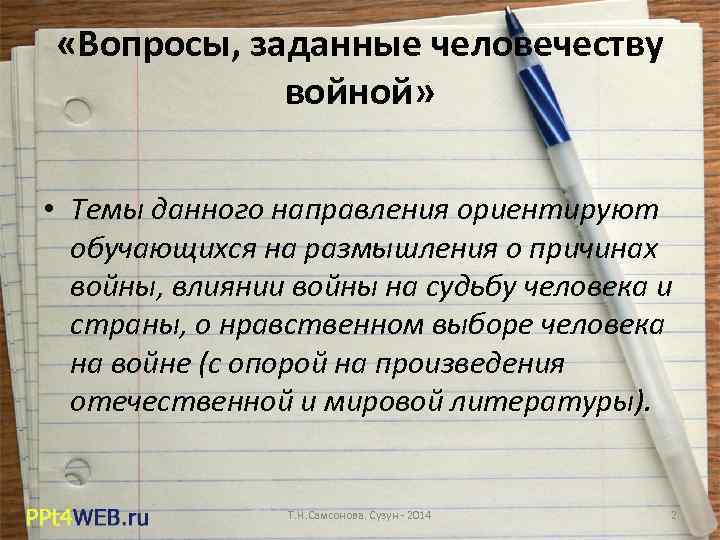 «Вопросы, заданные человечеству
войной»
• Темы данного направления ориентируют
обучающихся на размышления о причинах
войны, влиянии войны на судьбу человека и
страны, о нравственном выборе человека
на войне (с опорой на произведения
отечественной и мировой литературы).
PPt4WEB.ru
Т.Н.Самсонова. Сузун - 2014
2